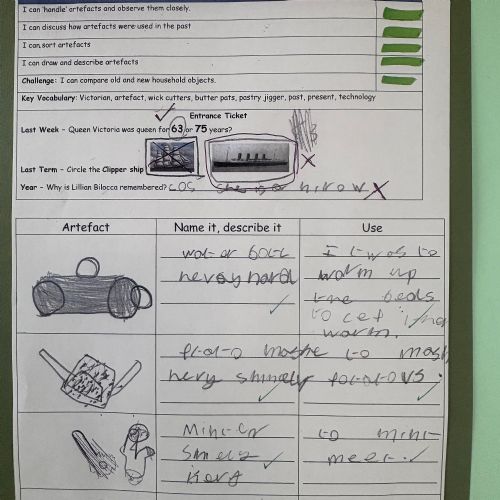 I can 'handle' artefacts and observe them closely.
I can discuss how artefacts were used in the past
I can sort artefacts
I can draw and describe artefacts
Challenge: I can compare old and new household objects.
Key Vocabulary: Victorian, artefact, wick cutters, butter pats, pastry jigger, past, present, technology
Entrance Ticket
Last Week – Queen Victoria was queen for 63 or 75 years?
Last Term – Circle the Clipper ship
Year – Why is Lillian Bilocca remembered? cos she is a hirow
Artefact Name it, describe it Use
wator botl
hevey hard
I t was to
warm up
the beds
to cet
warm.
potato mashe
hevy shinely
to mash
potatoys.
Mincer
Smely
to minc
meet.